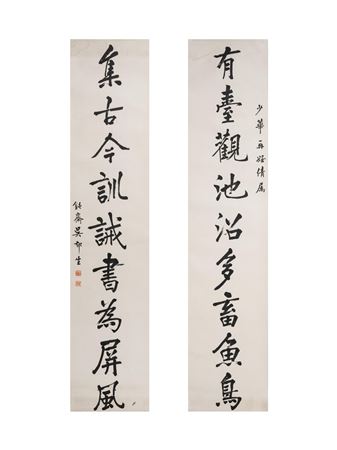 有臺觀池沼多畜魚鳥
少華
屬
集古今訓誡書為屏風
鈍齋吳郁生